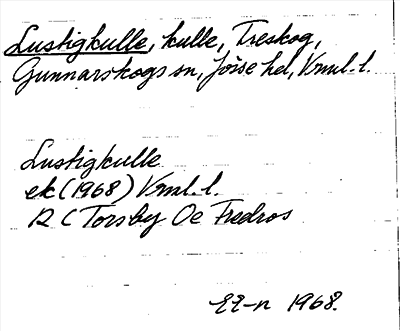 Lustigkulle, kulle, Treskog,
Gunnarskogs sn, Jösse hd, Vrml. l.
Lustigkulle
ek (1968) Vrml. l.
12 C Torsby Öe Fredros
EE-n 1968.